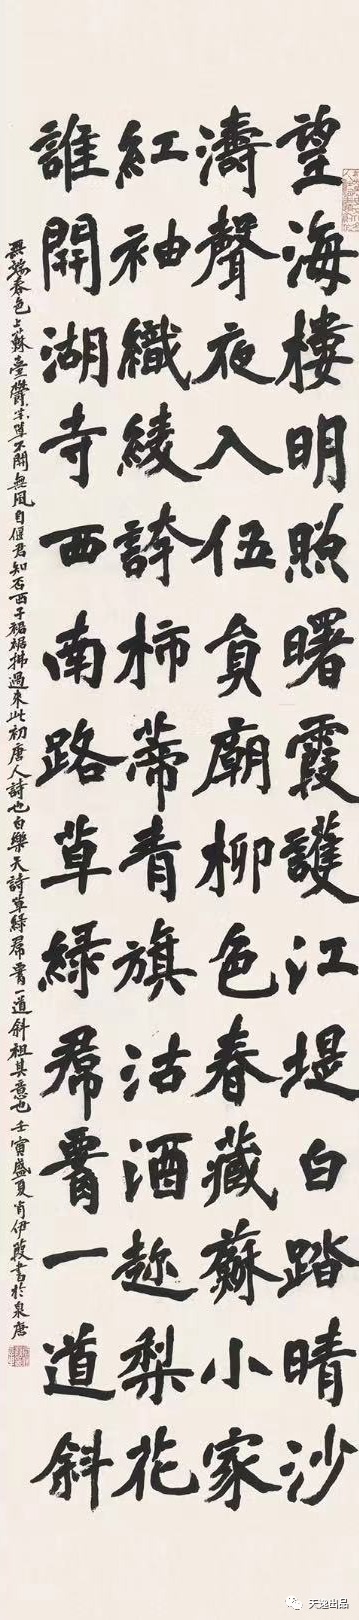 望海樓明照曙霞護江堤白踏晴沙
濤聲夜入伍員廟柳色春藏蘇小家
紅袖織綾誇柿蒂青旗沽酒趂梨花
誰開湖寺西南路草綠帬腰一道斜
無端春色上蘇臺鬱〻芊〻草不開無風自偃君知否西子裙裾拂過來此初唐人詩也白樂天詩草綠帬腰一道斜祖其意也壬寅盛夏肖伊葭書於泉唐
天逸出品